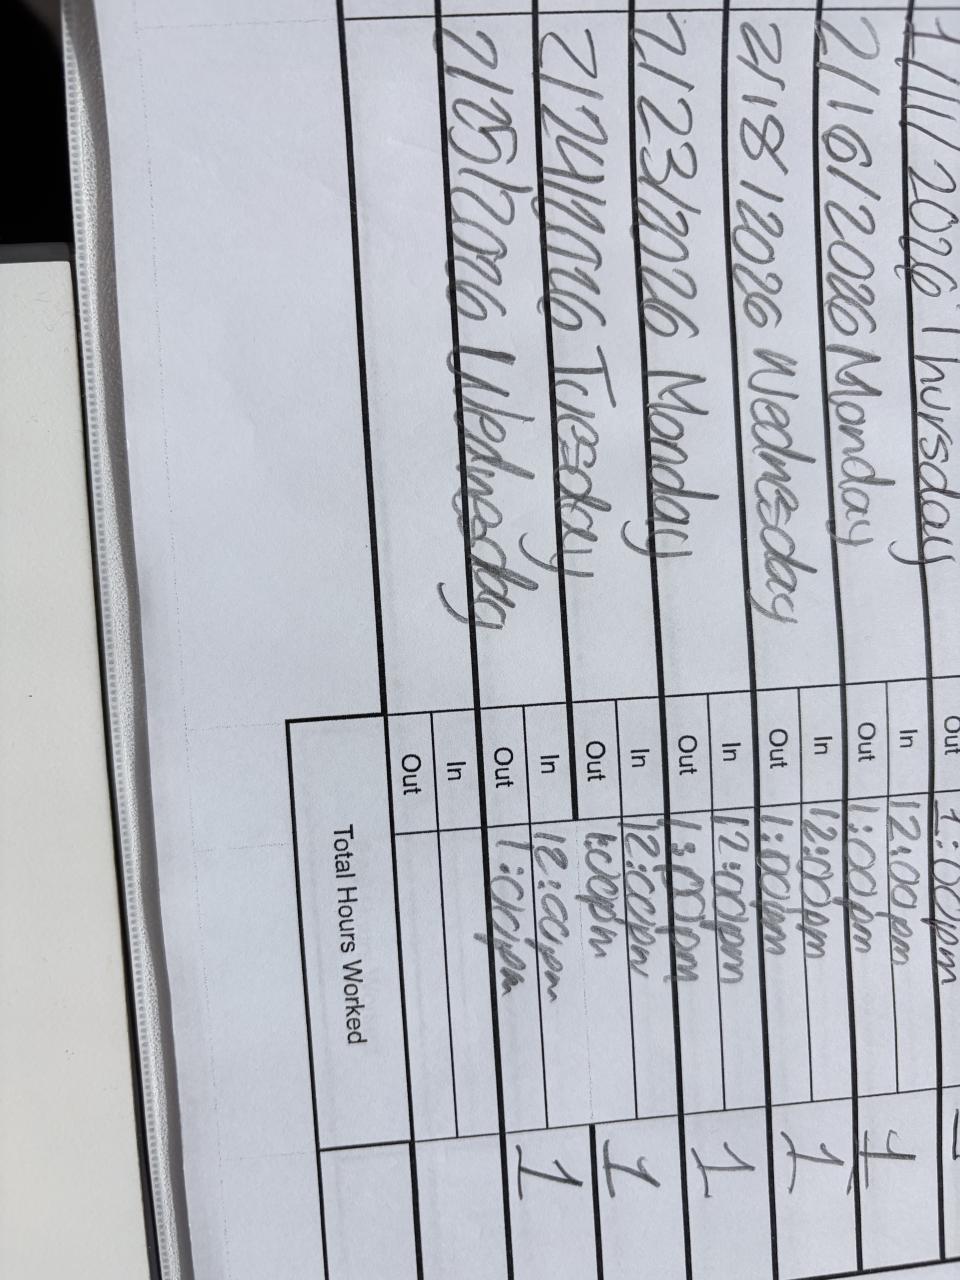 2026 Thursday Out 1:00pm
2/16/2026 Monday In 12:00pm 1
Out 1:00pm
2/18/2026 Wednesday In 12:00pm 1
Out 1:00pm
2/23/2026 Monday In 12:00pm 1
Out 1:00pm
2/24/2026 Tuesday In 12:00pm 1
Out 1:00pm
2/25/2026 Wednesday In 12:00pm 1
Out 1:00pm
In
Out
Total Hours Worked